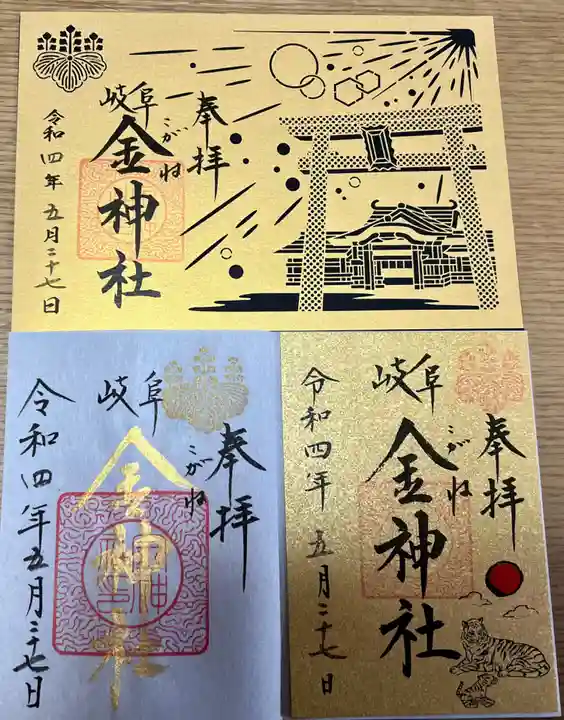 奉拝
岐阜
金神社
こがね
令和四年 五月二十七日
奉拝
岐阜
金神社
こがね
令和四年五月二十七日
奉拝
岐阜
金神社
こがね
令和四年 五月二十七日